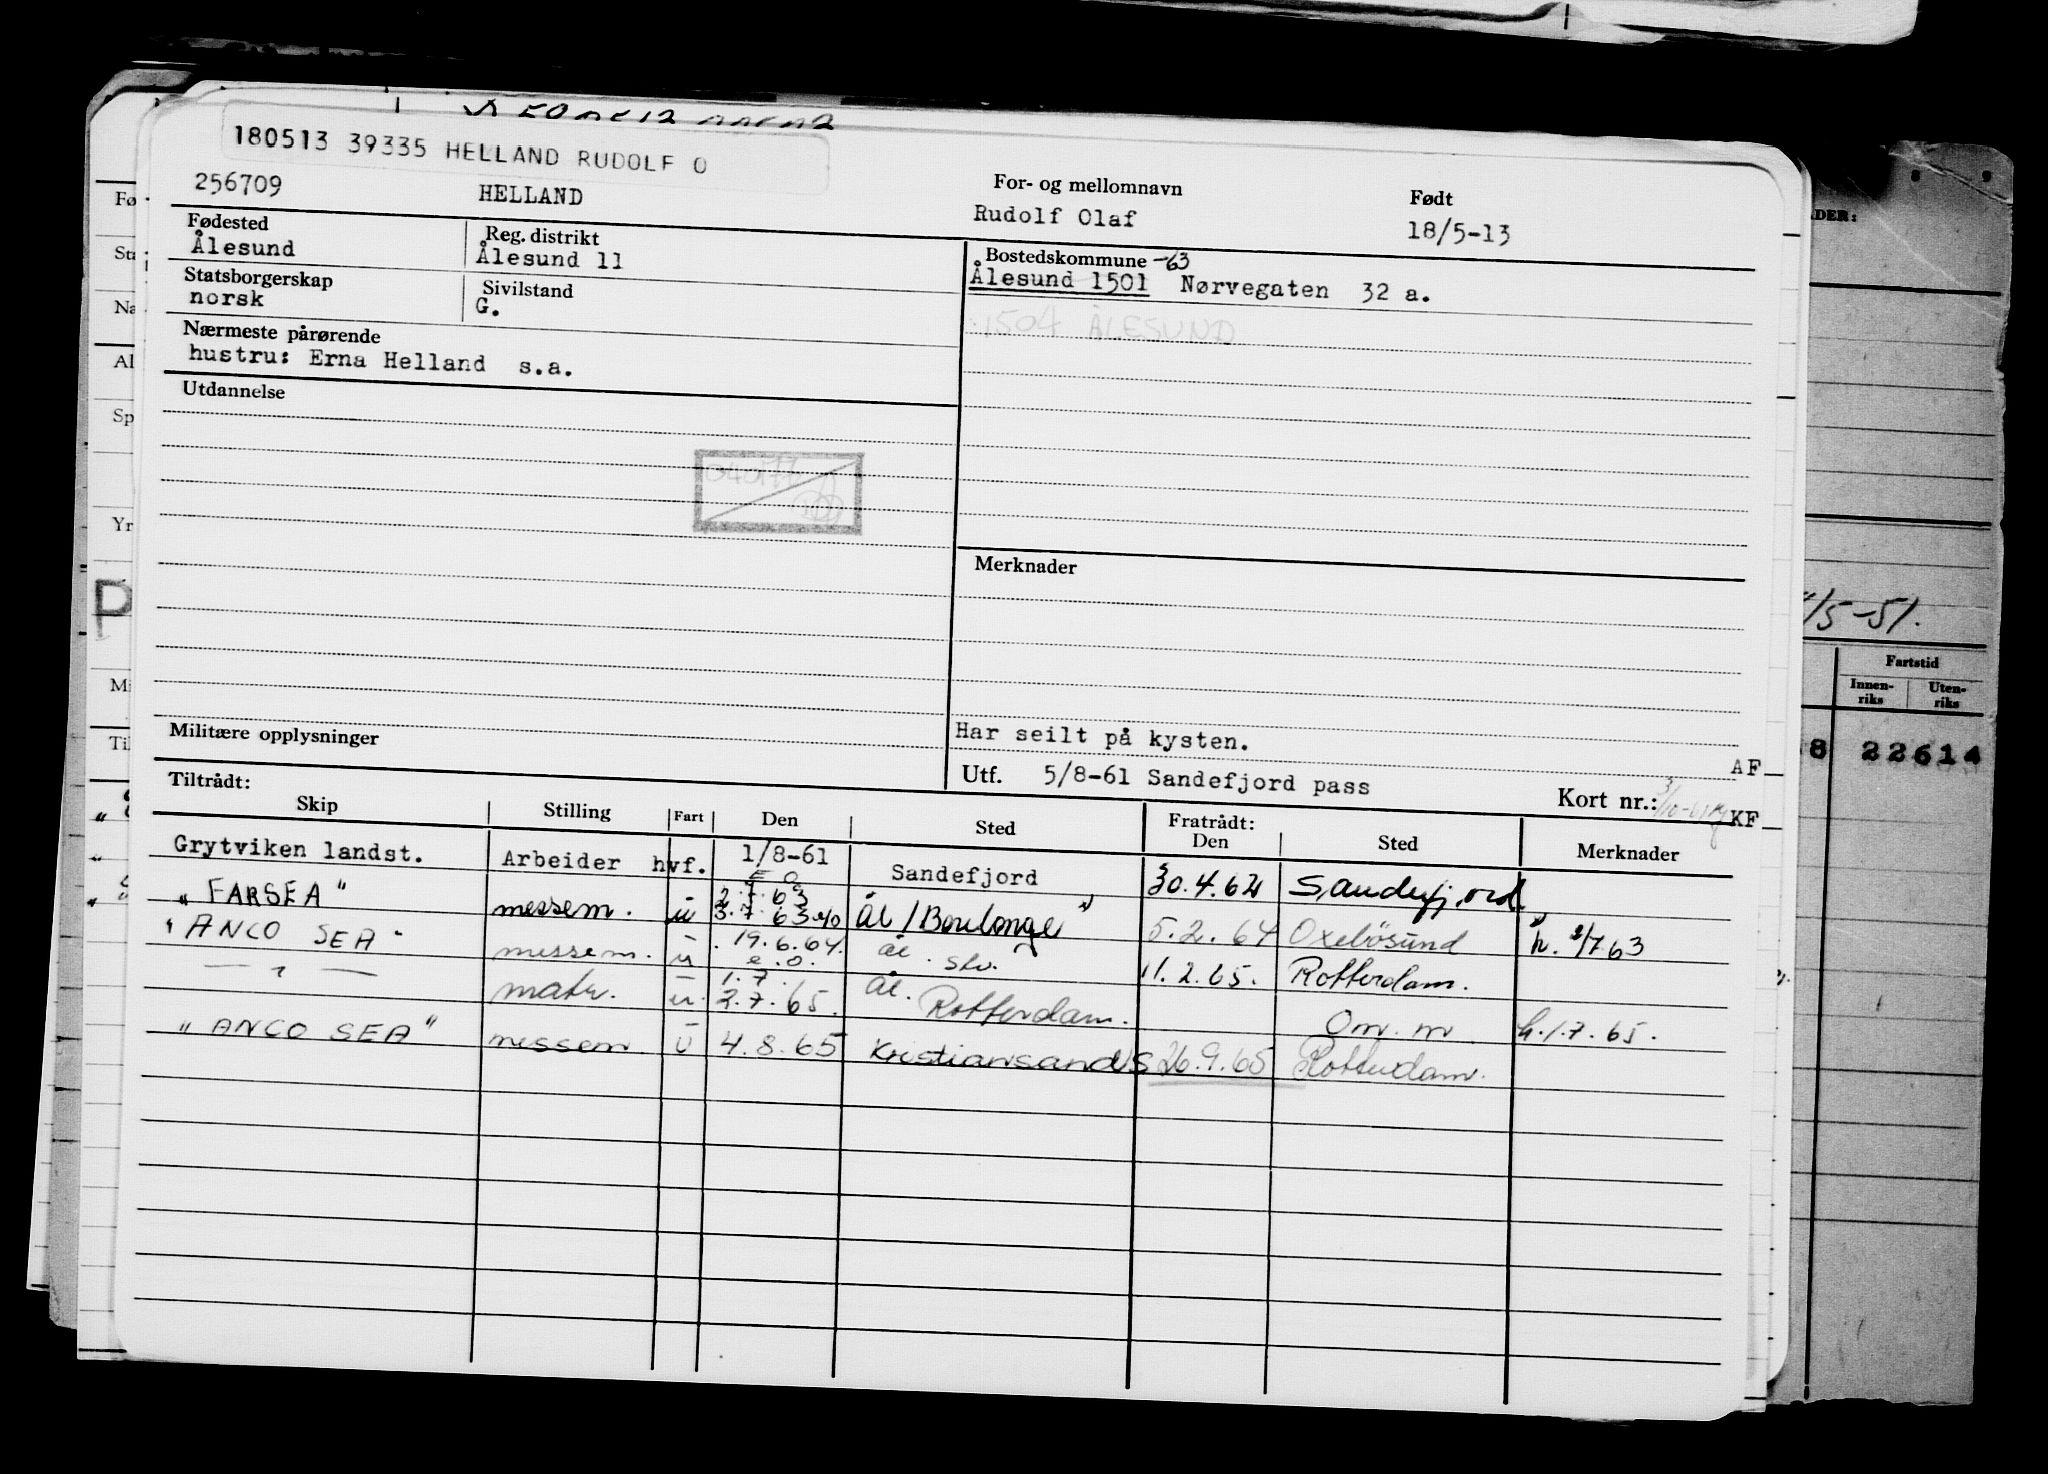 180513 39335 HELLAND RUDOLF O
256709 HELLAND For- og mellomnavn Rudolf Olaf Født 18/5-13
Fødested Ålesund
Reg. distrikt Ålesund 11
Bostedskommune -63
Ålesund 1501 Nørvegaten 32 a.
1504 ÅLESUND
Statsborgerskap norsk
Sivilstand G.
Nærmeste pårørende
hustru: Erna Helland s.a.
Utdannelse
Merknader
Har seilt på kysten.
AF
Militære opplysninger
Utf. 5/8-61 Sandefjord pass
Kort nr.: KF
Tiltrådt: Fratrådt:
Skip Stilling Fart Den Sted Den Sted Merknader
Grytviken landst. Arbeider hvf. 1/8-61 Sandefjord 30.4.62 Sandefjord
"FARSEA" messem. u 2.7.63 3.7.63 Ål/Boulonge 5.2.64 Oxelösund h. 2/7 63
"ANCO SEA" messem. u 19.6.64. e.o. ål. slv. 11.2.65. Rotterdam.
— " — matr. u. 1.7. 2.7.65. Ål. Rotterdam. Om. m h.1.7.65.
"ANCO SEA" messem u 4.8.65 Kristiansand S 26.9.65 Rotterdam.
Fø
Na
Al
Sp
Yr
P
Mi
Til
DER:
/5-51.
Fartstid
Innen-riks Uten-riks
8 22614